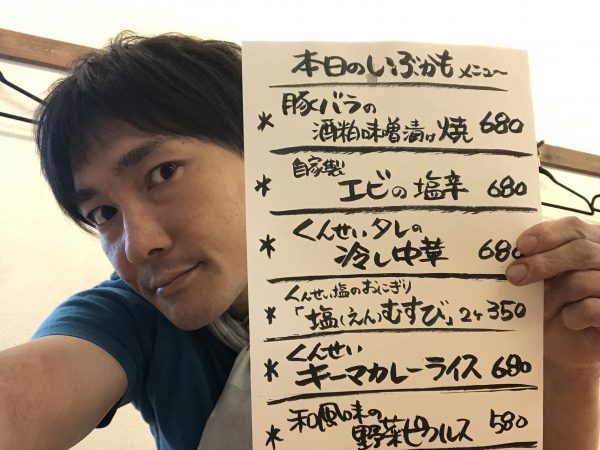 本日のいぶかもメニュー
* 豚バラの
酒粕味噌漬け焼 680
* 自家製
エビの塩辛 680
* くんせいタレの
冷し中華 680
くんせい塩のおにぎり
* 「塩(えん)むすび」2ヶ 350
* くんせい
キーマカレーライス 680
* 和風味の
野菜ピクルス 580